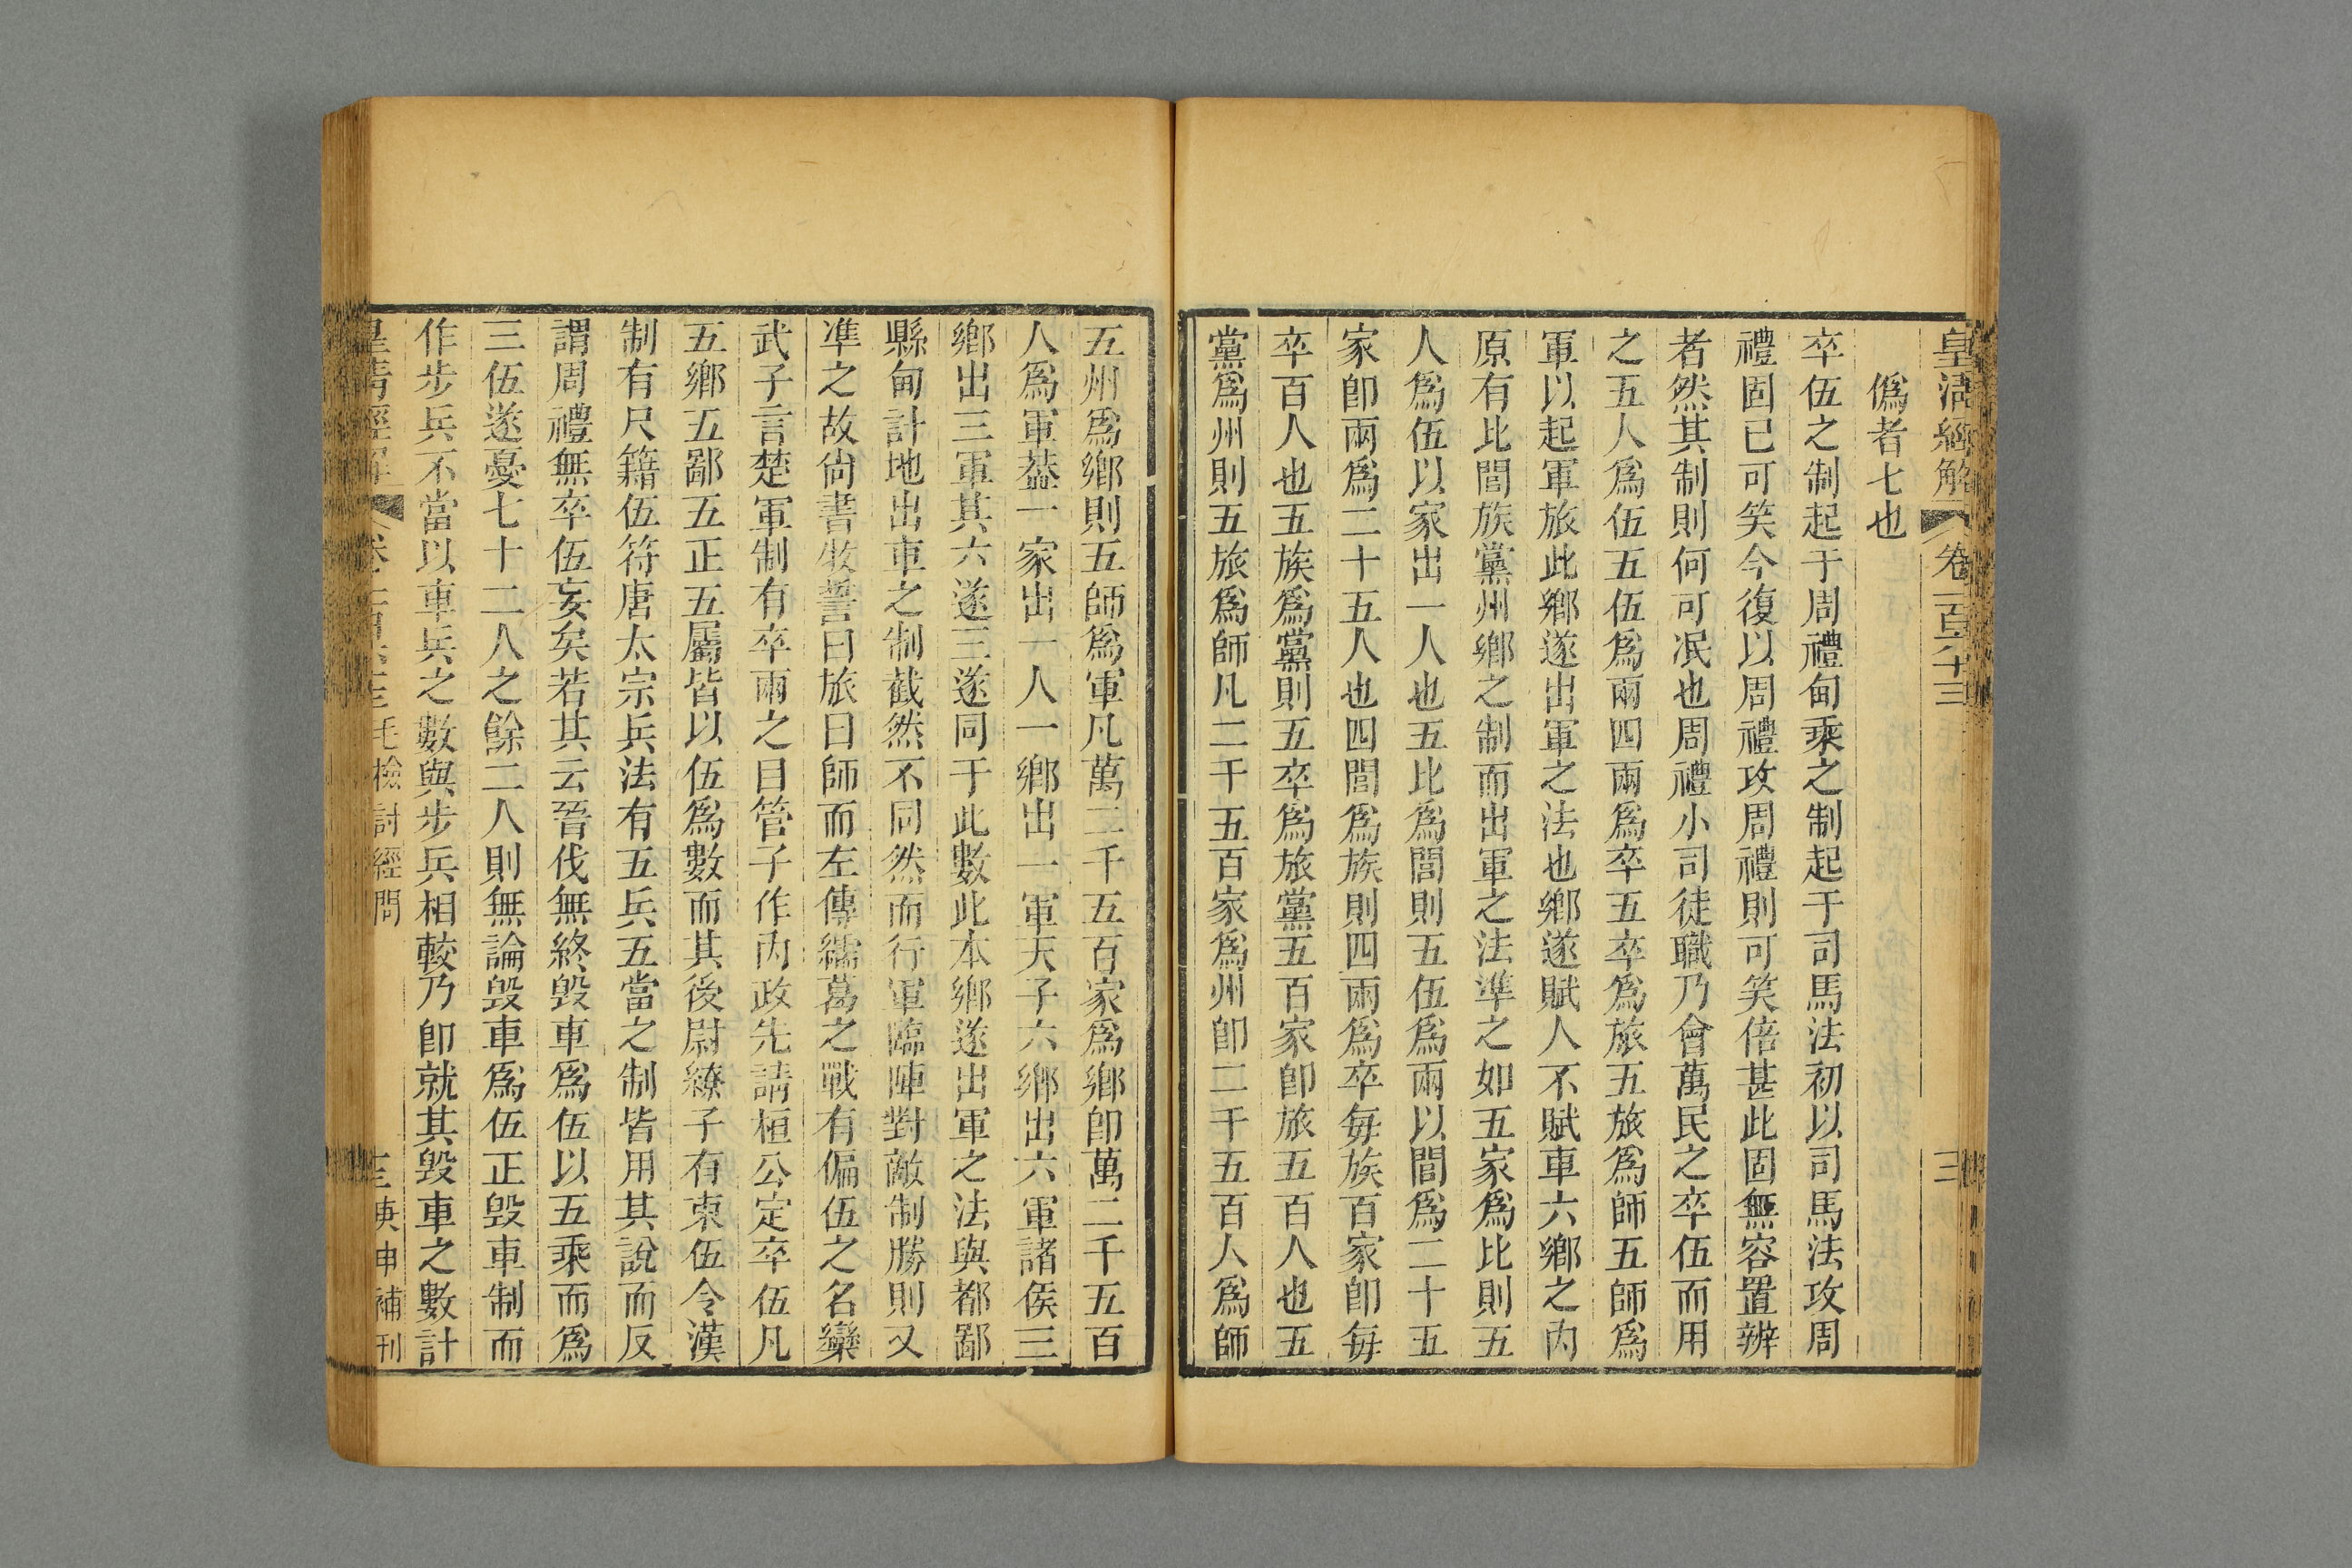 皇清經解 卷一百六十三 三
僞者七也
卒伍之制起于周禮甸乘之制起于司馬法初以司馬法攻周
禮固已可笑今復以周禮攻周禮則可笑倍甚此固無容置辨
者然其制則何可泯也周禮小司徒職乃會萬民之卒伍而用
之五人爲伍五伍爲兩四兩爲卒五卒爲旅五旅爲師五師爲
軍以起軍旅此鄉遂出軍之法也鄉遂賦人不賦車六鄉之內
原有比閭族黨州鄉之制而出軍之法準之如五家爲比則五
人爲伍以家出一人也五比爲閭則五伍爲兩以閭爲二十五
家卽兩爲二十五人也四閭爲族則四兩爲卒每族百家卽每
卒百人也五族爲黨則五卒爲旅黨五百家卽旅五百人也五
黨爲州則五旅爲師凡二千五百家爲州卽二千五百人爲師
五州爲鄉則五師爲軍凡萬二千五百家爲鄉卽萬二千五百
人爲軍葢一家出一人一鄉出一軍天子六鄉出六軍諸侯三
鄉出三軍其六遂三遂同于此數此本鄉遂出軍之法與都鄙
縣甸計地出車之制截然不同然而行軍臨陣對敵制勝則又
準之故尙書牧誓曰旅曰師而左傳繻葛之戰有偏伍之名欒
武子言楚軍制有卒兩之目管子作內政先請桓公定卒伍凡
五鄉五鄙五正五屬皆以伍爲數而其後尉繚子有束伍令漢
制有尺籍伍符唐太宗兵法有五兵五當之制皆用其說而反
謂周禮無卒伍妄矣若其云晉伐無終毀車爲伍以五乘而爲
三伍遂憂七十二人之餘二人則無論毀車爲伍正毀車制而
作步兵不當以車兵之數與步兵相較乃卽就其毀車之數計
皇清經解 卷 毛檢討經問 庚申補刊